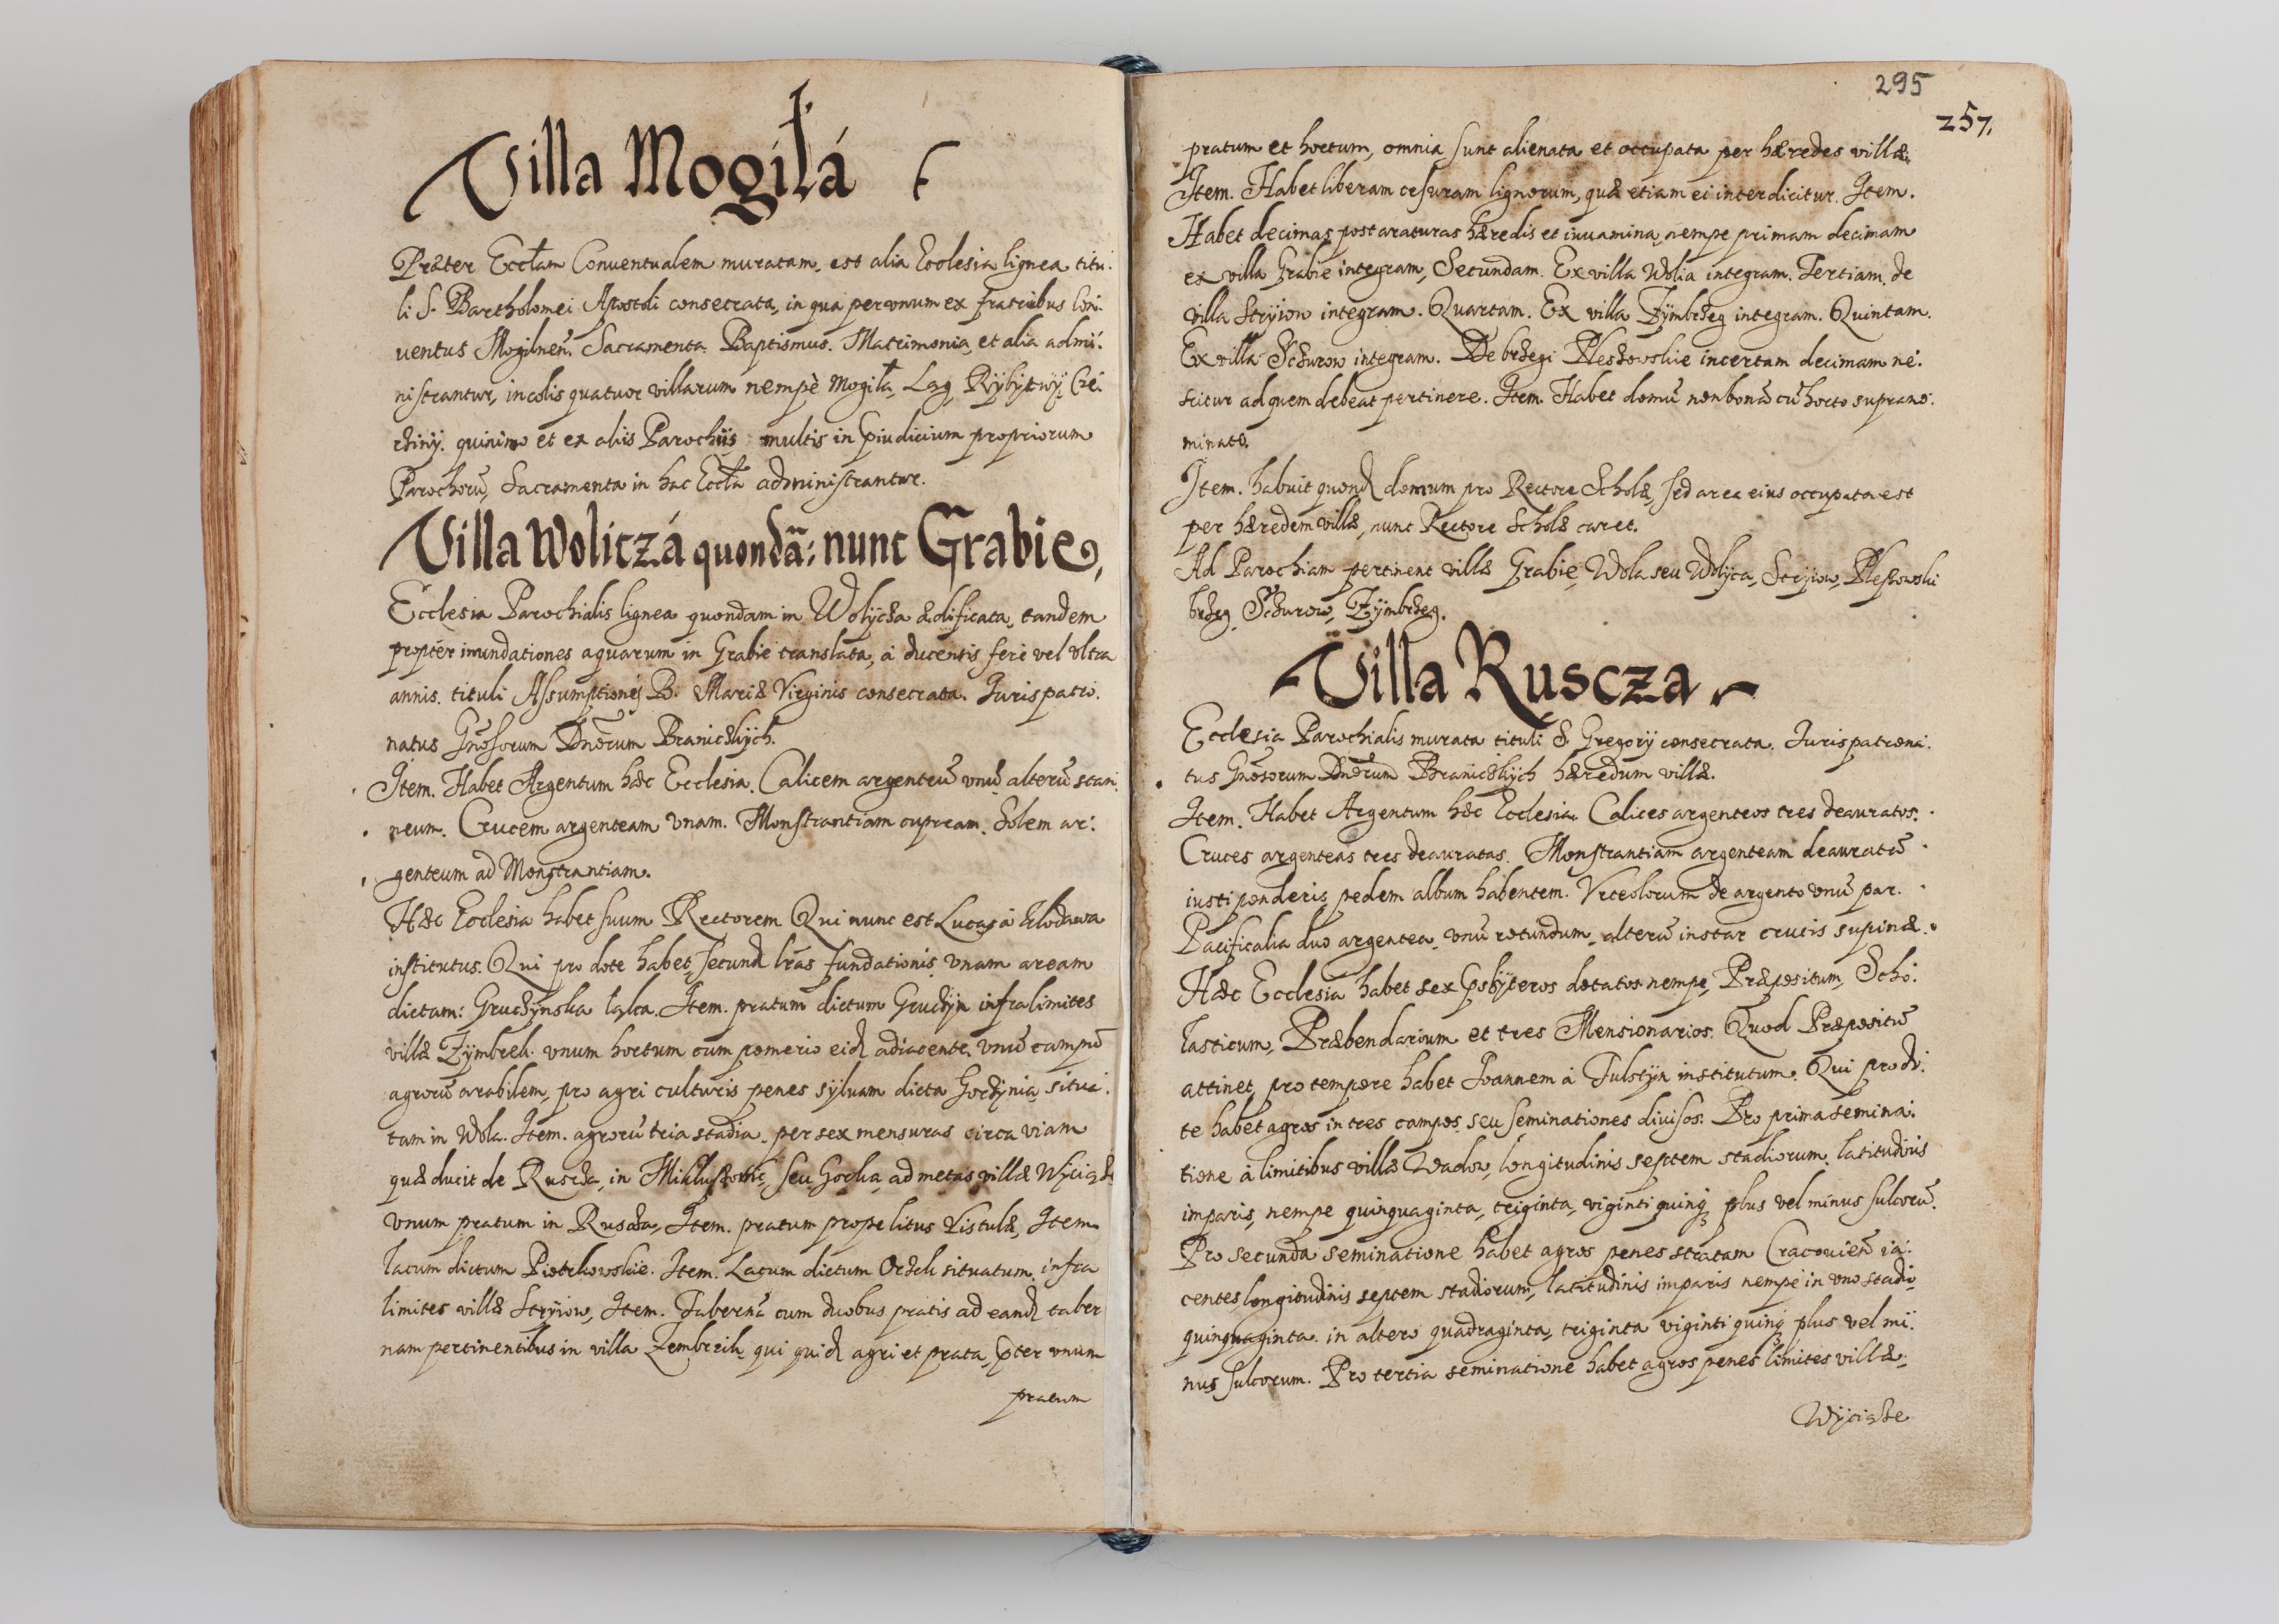 Villa Mogiłá
Præter Eccłam Conuentualem muratam, est alia Ecclesia lignea titu:
li S. Bartholomei Apostoli consecrata, in qua per vnum ex fratribus Con:
uentus Mogilneñ. Sacramenta Baptismus. Matrimonia, et alia admi:
nistrantur, incolis quatuor villarum nempè Mogiła, Lag, Rÿbÿtwÿ,
quinimo et ex aliis Parochiis multis in præiudicium propriorum
Parochorũ, Sacramenta in hac Eccła administrantur.
Villa Woliczá quondã: nunc Grabie,
Ecclesia Parochialis lignea quondam in Wolÿcza ædificata, tandem
propter inundationes aquarum in Grabie translata, à ducentis ferè vel vltra
annis. tituli Assumptionis B. Mariæ Virginis consecrata. Iuris patro:
natus Gñosorum Dñorum Braniczkÿch.
Item. Habet Argentum hæc Ecclesia. Calicem argenteũ vnũ, alterũ stan:
neum. Crucem argenteam vnam. Monstrantiam cupream. Solem ar:
genteum ad Monstrantiam.
Hæc Ecclesia habet suum Rectorem Qui nunc est Lucas à Klodawa
institutus. Qui pro dote habet, secund lr̃as fundationis vnam aream
dictam: Gruczÿnska łąka. Item. pratum dictum Gruczÿn infra limites
villæ Zÿmbrek. vnum hortum cum pomerio eid adiacente. vnũ campũ
agrorũ arabilem, pro agri culturis penes sÿluam dicta Gorzÿnia, situa:
tam in Wola. Item. agrorũ tria stadia, per sex mensuras circa viam
quæ ducit de Ruscza, in seu Gorka, ad metas villæ
vnum pratum inRuscza, Item. pratum prope litus Vistulæ, Item
lacum dictum Piotrkowskie. Item. Lacum dictum situatum infra
limites villæ Strÿiow, Item. Tabernã cum duobus pratis ad eand taber
nam pertinentibus in villa qui quid agri et prata, præter vnum
pratum
295
257.
pratum et hortum, omnia sunt alienata et occupata per hæredes villæ.
Item. Habet liberam cesuram lignorum, quæ etiam ei interdicitur. Item.
Habet decimas post araturas hæredis et iuuamina, nempe primam decimam
ex villa Grabie integram, Secundam. Ex villa Wolia integram. Tertiam. de
villa Strÿiow integram. Quartam. Ex villa Zÿmbrzeg integram. Quintam.
Ex villa Sczurow integram. De brzegi Pleszowskie incertam decimam ne:
scitur ad quem debeat pertinere. Item. Habet domũ non bonã cũ horto supran̄o:
minato.
Item. habuit quond domum pro Rectore Scholæ, sed area eius occupata est
per hæredem villæ, nunc Rectore Scholæ caret.
Ad Parochiam pertinent villæ Grabie, Wola seu Wolÿca, Strÿiow, Pleszowski
brzeg, Sczurow, Zÿmbrzeg.
Villa Ruscza
Ecclesia Parochialis murata tituli S. Gregorÿ consecrata. Iuris patrona:
tus Gñosorum Dñorum Braniczkÿch hæredum villæ.
Item. Habet Argentum hæc Ecclesia. Calices argenteos tres deauratos.
Cruces argenteas tres deauratas. Monstrantiam argenteam deauratã
iusti ponderis, pedem album habentem. Vrceolorum de argento vnũ par.
Pacificalia duo argentea, vnũ rotundum, alterũ instar crucis supinæ.
Hæc Ecclesia habet sex Prsbÿteros dotatos nempe, Præpositum, Scho:
lasticum, Præbendarium et tres Mensionarios. Quod Præpositũ
attinet, pro tempore habet Ioannem à Tulscÿn institutum. Qui pro do:
te habet agros in tres campos, seu seminationes diuisos. Pro prima semina:
tione à limitibus villæ Wadow, longitudinis septem stadiorum, latitudinis
imparis, nempe quinquaginta, triginta, viginti quinq plus vel minus sulcorũ.
Pro secunda seminatione habet agros penes stratam Cracouieñ ia:
centes, longitudinis septem stadiorum, latitudinis imparis nempè in vno stadio
quinquaginta. in altero quadraginta, triginta viginti quinq plus vel mi:
nus sulcorum. Pro tertia seminatione habet agros penes limites villæ
Wÿciąże